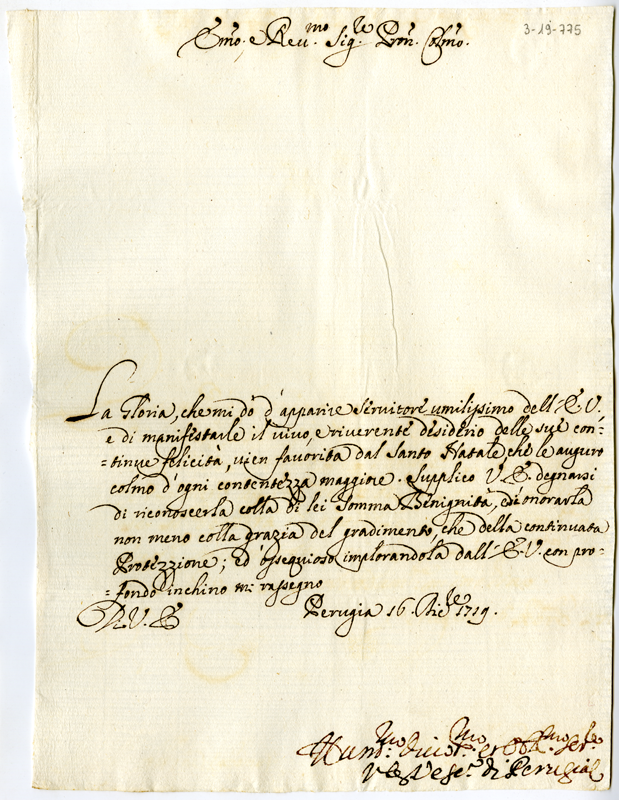 3-19-775
Emo. e Reu.mo Sig.re Prn. Colmo.
La Gloria, che mi dò d'apparire Seruitore umilissimo dell'E.V.
e di manifestarle il uiuo, e riuerente desiderio delle sue con-
=tinue felicità, uien fauorita dal Santo Natale che le auguro
colmo d'ogni contentezza maggiore. Supplico V.E. degnarsi
di riconoscerla colla di lei Somma Benignità, ed onorarla
non meno colla grazia del gradimento, che della continuata
Protezzione; ed ossequioso implorandola dall'E.V. con pro-
=fondo inchino mi rassegno
Di V.E. Perugia 16 Xbre 1719.
di Perugia